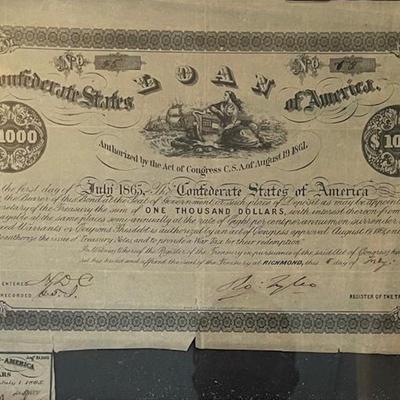 No 85 No 85
Confederate States LOAN of America.
$1000 $10
Authorized by the Act of Congress C.S.A. of August 19 1861.
the first day of July 1865, The Confederate States of America
the Bearer of this Bond at the Seat of Government or such place of Deposit as may be appoin
of the Treasury the sum of ONE THOUSAND DOLLARS, with interest thereon from
payable at the same place semi-annually at the rate of Eight per cent per annum on surrender of
ed Warrants or Coupons. This debt is authorized by an act of Congress approved August 19 1861, en
authorize the issue of Treasury Notes, and to provide a War Tax for their redemption"
In testimony whereof the Register of the Treasury in pursuance of the said Act of Congress h
set his hand and affixed the seal of the Treasury at RICHMOND, this day of
ENTERED
RECORDED
Ro. Tyler
REGISTER OF THE TR
AMERICA
ARS
July 1. 1865